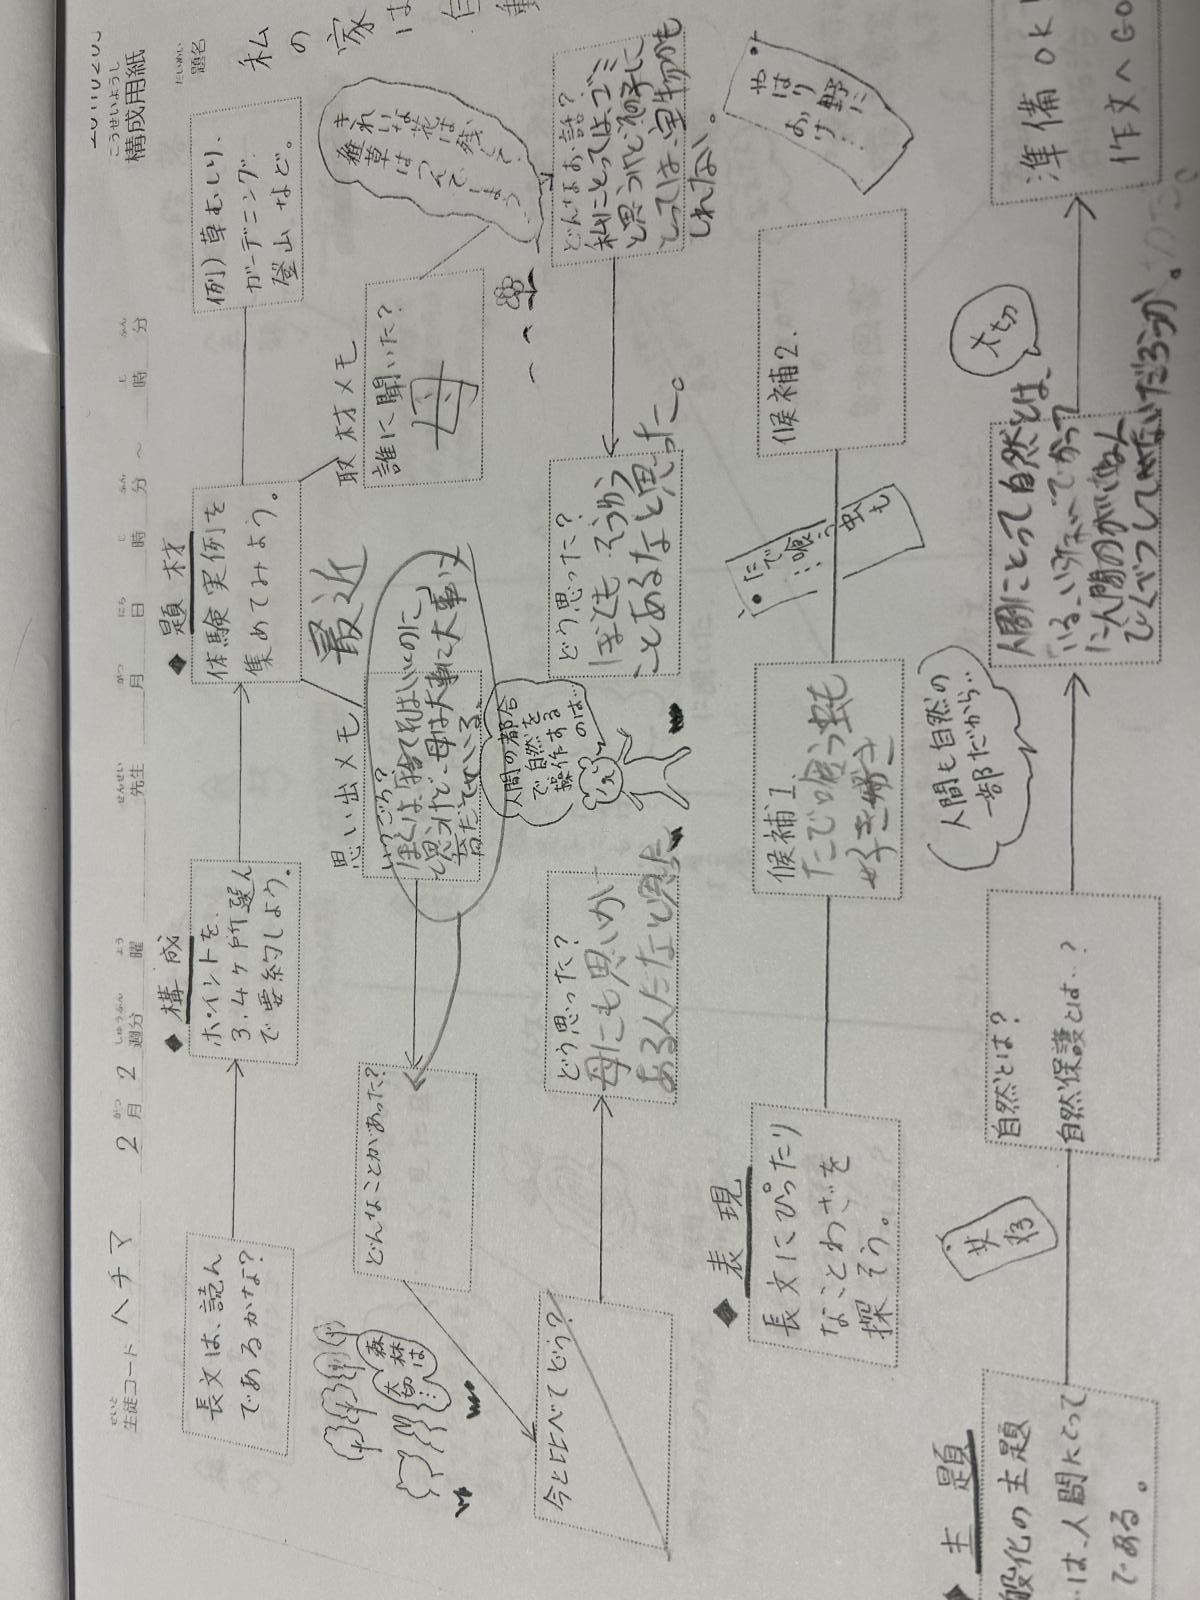 構成用紙
こうせいようし
題名
だいめい
私の家は
生徒コード ヘチマ 2月2週分 曜 先生 月 日 時 分 〜 時 分
せいと がつ しゅうぶん よう せんせい がつ にち じ ふん じ ふん
◆構成
長文は、読ん
であるかな?
ポイントを、
3.4ケ所選ん
で要約しよう。
◆題材
体験実例を
集めてみよう。
例)草むしり、
ガーデニング、
登山など。
思い出メモ
最近
いつごろ?
ぼくは、捨てればいいのに
と思うけど、母は大事に大事に
育だてている。
取材メモ
誰に聞いた?
母
きれいな花は、残して、
雑草はつんで
しまう
どんなことがあった?
森林は
大切…
今と比べてどう?
どう思った?
母にも思いが
あるんだなと思った
人間の都合
で自然を
操作する
のは…
どんなお話?
私にとっては、ゴミ
と思うけど息子に
とっては、宝物かも
しれない。
どう思った?
ぼくも、そうゆう
ことあるなと思った。
◆表現
長文にぴったり
なことわざを
探そう。
候補1.
たで喰う虫も
好き好き
たで
喰う
虫も
候補2.
やはり
野に
おけ
◆主題
般化の主題
は、人間にとって
である。
共存
自然とは?
自然保護とは…?
人間も自然の
一部だから…
人間にとって自然とは、
大切
準備OK!
作文へGO